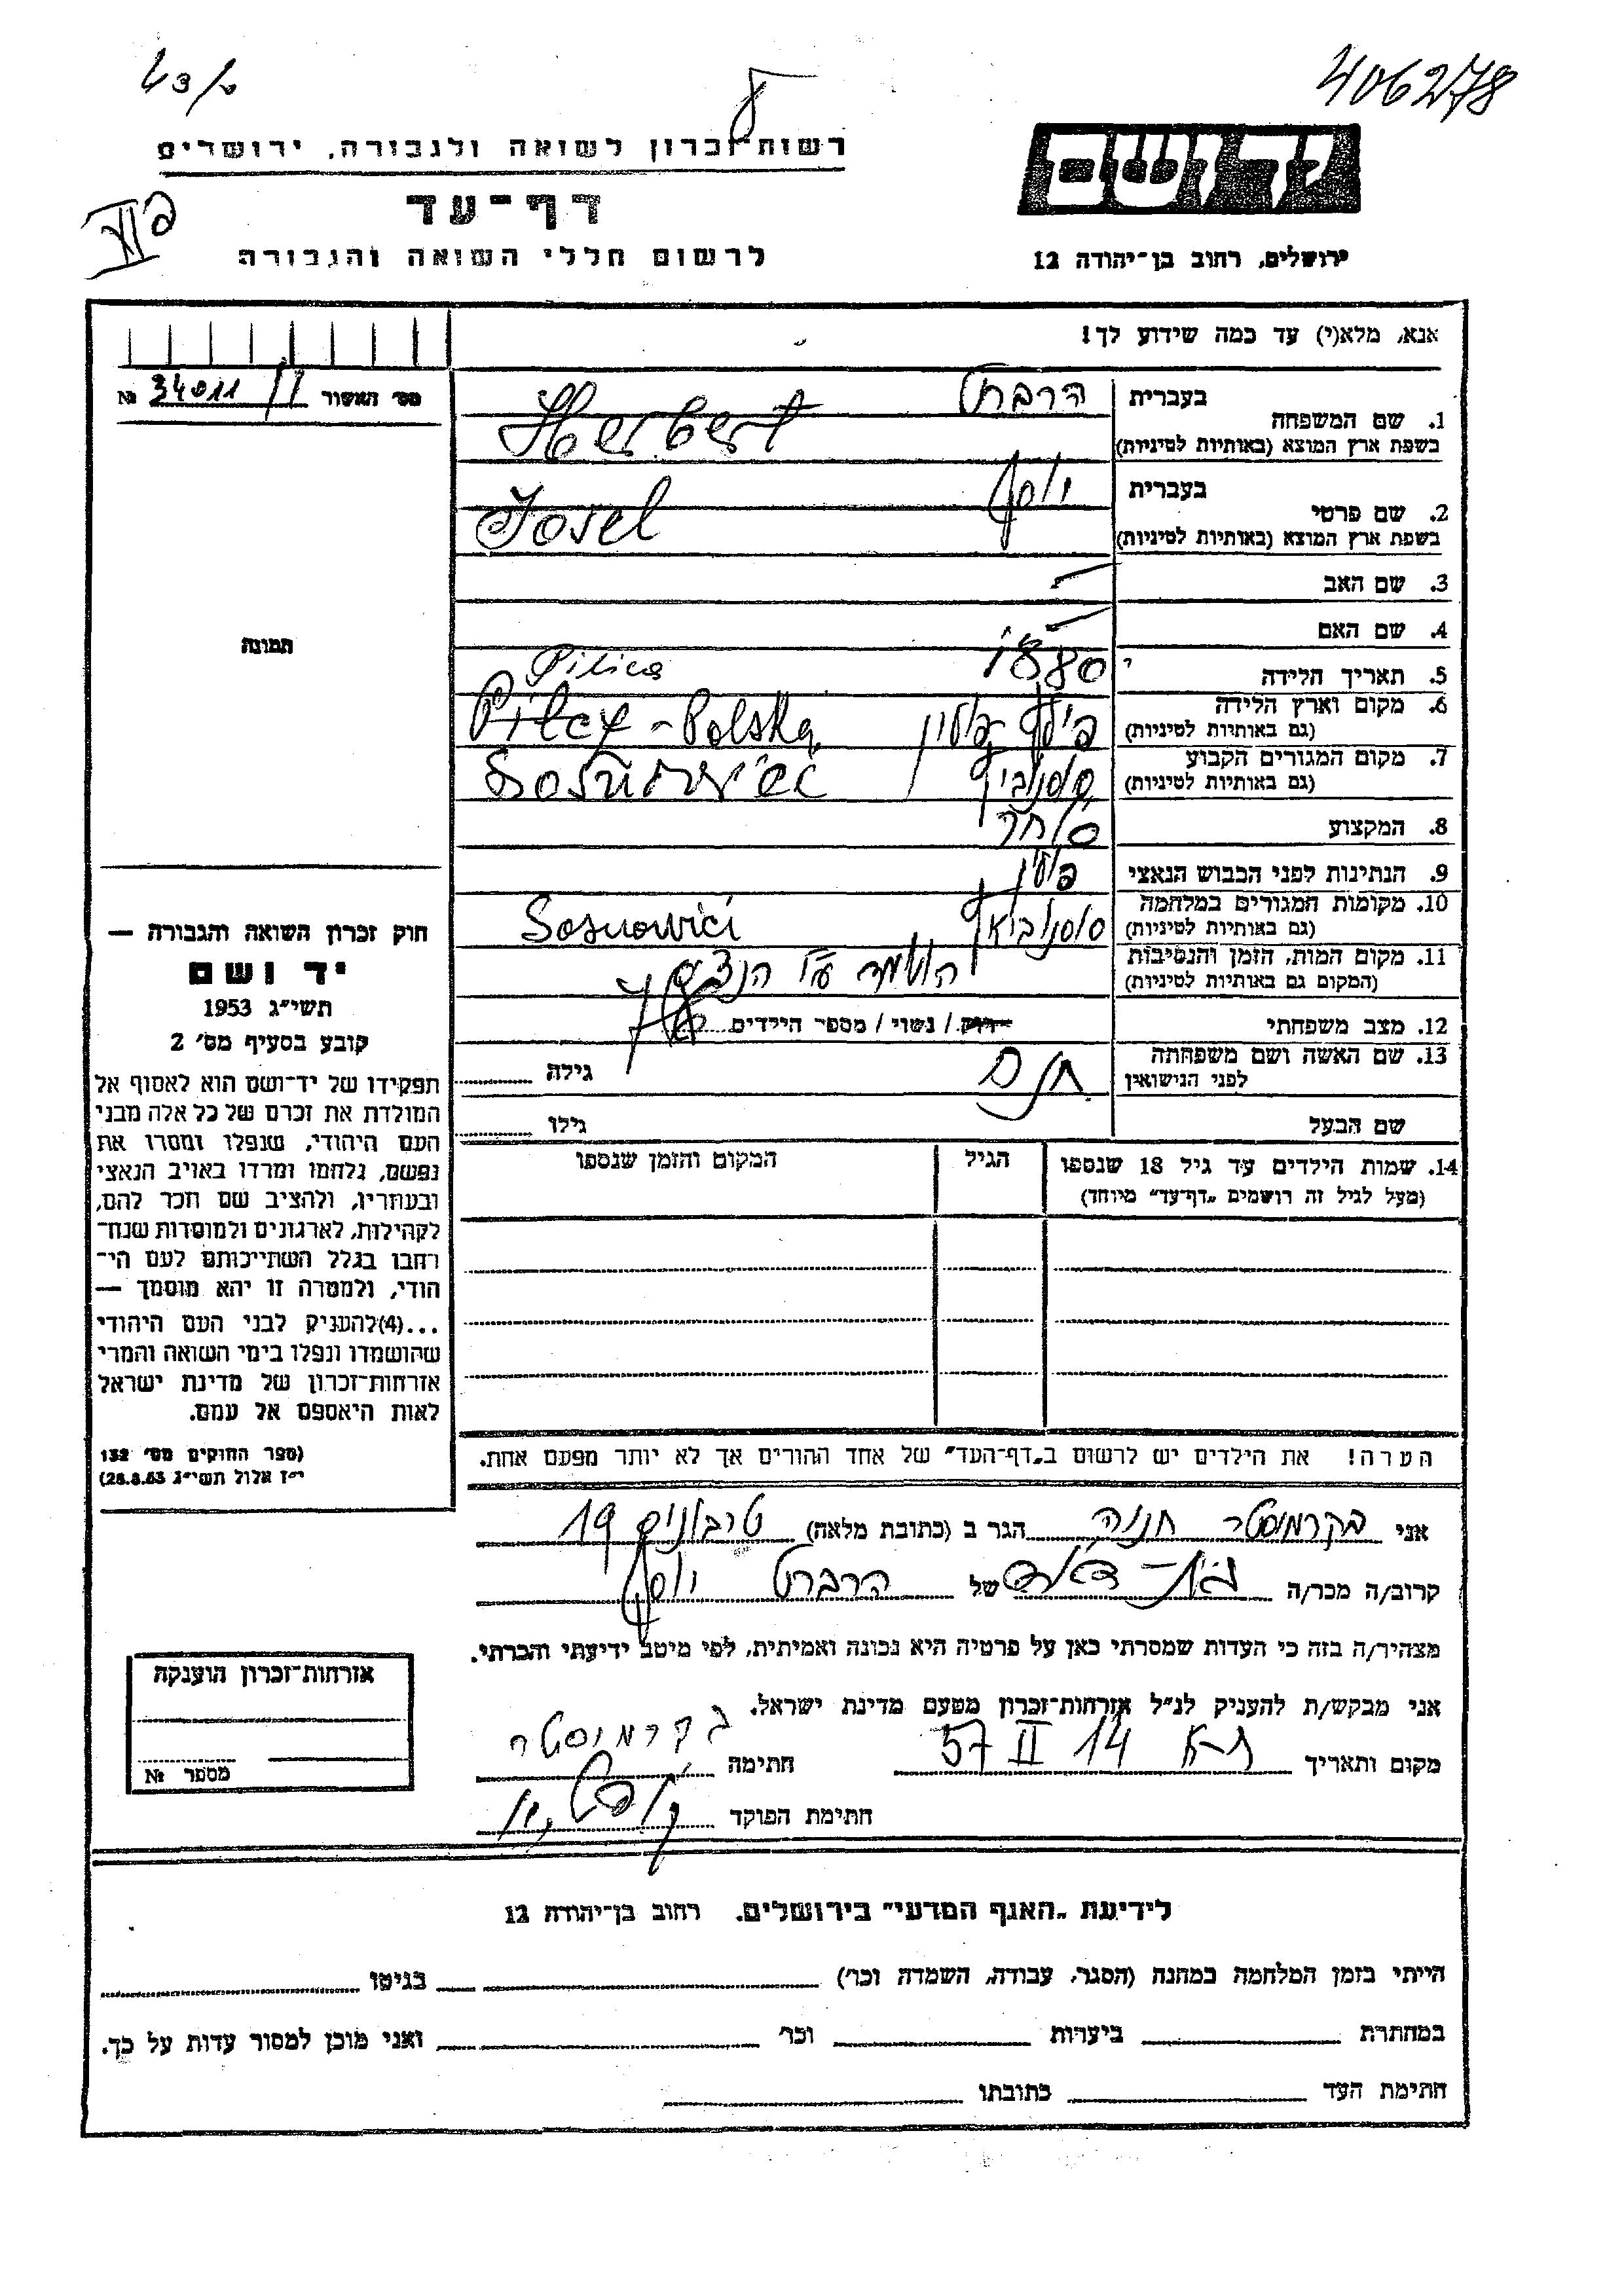 406278
רשות-זכרון לשואה ולגבורה, ירושלים
יד ושם
דף-עד
לרשום חללי השואה והגבורה
ירושלים, רחוב בן-יהודה 12
אנא, מלא(י) עד כמה שידוע לך!
מס' האשור № 34011
1. שם המשפחה
בעברית הרברט
בשפת ארץ המוצא (באותיות לטיניות) Herbert
2. שם פרטי
בעברית יוסף
בשפת ארץ המוצא (באותיות לטיניות) Josel
3. שם האב —
4. שם האם —
5. תאריך הלידה 1880
Pilica
6. מקום וארץ הלידה
(גם באותיות לטיניות) פילץ פולין Pilcy - Polska
7. מקום המגורים הקבוע
(גם באותיות לטיניות) סוסנוביץ Sosnowieć
8. המקצוע סוחר
9. הנתינות לפני הכבוש הנאצי פולין
10. מקומות המגורים במלחמה
(גם באותיות לטיניות) סוסנוביץ Sosnowici
11. מקום המות, הזמן והנסיבות
(המקום גם באותיות לטיניות) הושמד ע"י הנצים
12. מצב משפחתי רווק / נשוי / מספר הילדים
13. שם האשה ושם משפחתה
לפני הנישואין גילה
שם הבעל גילו
14. שמות הילדים עד גיל 18 שנספו הגיל המקום והזמן שנספו
(מעל לגיל זה רושמים "דף-עד" מיוחד)
תמונה
חוק זכרון השואה והגבורה —
יד ושם
תשי"ג 1953
קובע בסעיף מס' 2
תפקידו של יד-ושם הוא לאסוף אל
המולדת את זכרם של כל אלה מבני
העם היהודי, שנפלו ומסרו את
נפשם, נלחמו ומרדו באויב הנאצי
ובעוזריו, ולהציב שם וזכר להם,
לקהילות, לארגונים ולמוסדות שנח-
רחבו בגלל השתייכותם לעם הי-
הודי, ולמטרה זו יהא מוסמך —
...(4)להעניק לבני העם היהודי
שהושמדו ונפלו בימי השואה והמרי
אזרחות-זכרון של מדינת ישראל
לאות היאספם אל עמם.
(ספר החוקים מס' 132
י"ז אלול תשי"ג 28.8.53)
הערה! את הילדים יש לרשום ב"דף-העד" של אחד ההורים אך לא יותר מפעם אחת.
אני בקרמוסטר חנוה הגר ב (כתובת מלאה) טריבונים 19
קרוב/ה מכר/ה בת-דוד של הרברט יוסף
מצהיר/ה בזה כי העדות שמסרתי כאן על פרטיה היא נכונה ואמיתית, לפי מיטב ידיעתי והכרתי.
אני מבקש/ת להעניק לנ"ל אזרחות-זכרון מטעם מדינת ישראל.
מקום ותאריך ת-א 14 II 57 חתימה בקרמוסטר
חתימת הפוקד
אזרחות-זכרון הוענקה
מספר №
לידיעת "האגף המדעי" בירושלים. רחוב בן-יהודה 12
הייתי בזמן המלחמה במחנה (הסגר, עבודה, השמדה וכו') בגיטו
במחתרת ביערות וכו' ואני מוכן למסור עדות על כך.
חתימת העד כתובתו